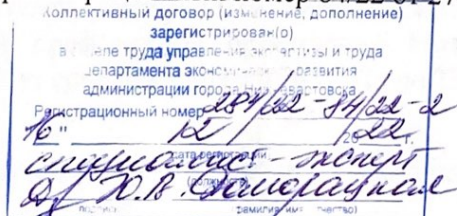 Коллективный договор (изменение, дополнение)
зарегистрирован(о)
в отделе труда управления экспертизы и труда
департамента экономического развития
администрации города Нижневартовска
Регистрационный номер 281/22-84/22-2
"16" 12 2022 г.
дата регистрации
специалист-эксперт
должность
Ю.В.
подпись фамилия, имя (отчество)